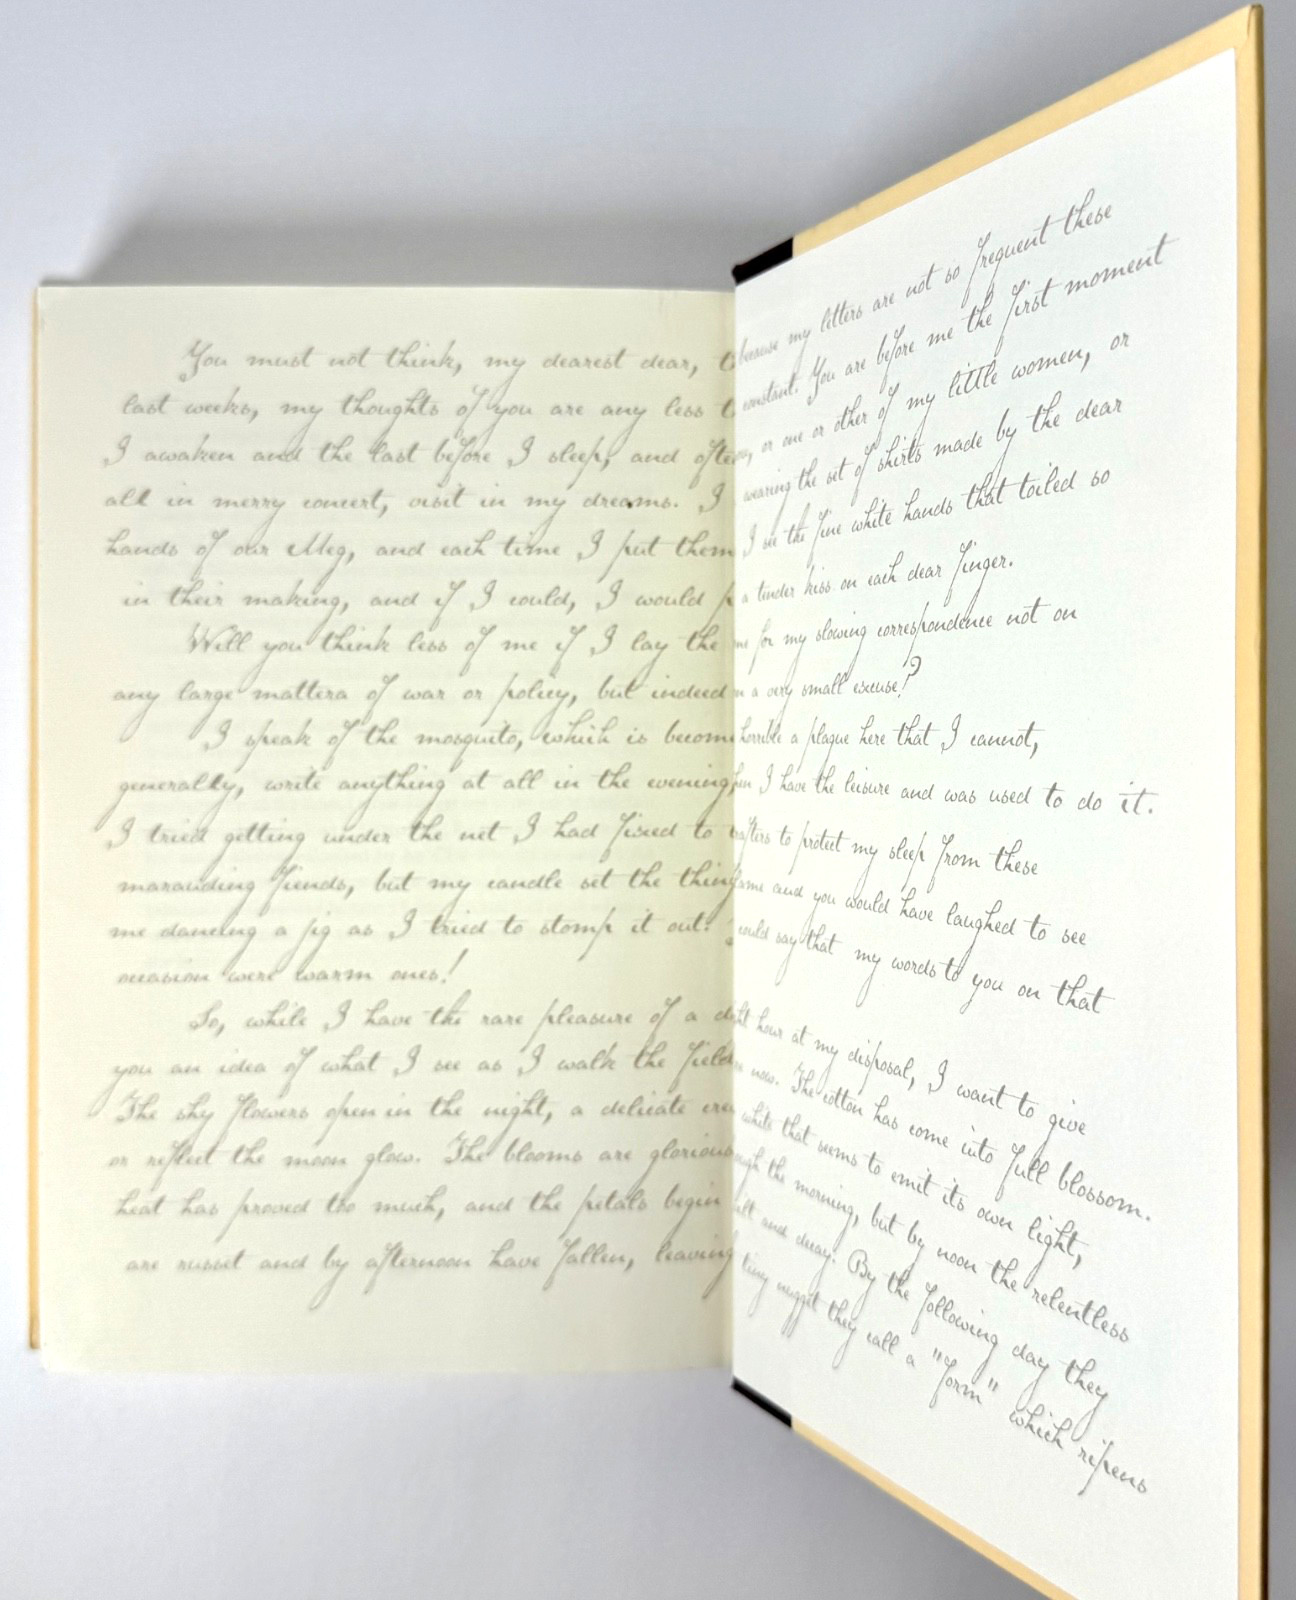 You must not think, my dearest dear, because my letters are not so frequent these
last weeks, my thoughts of you are any less constant. You are before me the first moment
I awaken and the last before I sleep, and often or one or other of my little women, or
all in merry concert, visit in my dreams. I wearing the set of shirts made by the dear
hands of our Meg, and each time I put them I see the fine white hands that toiled so
in their making, and if I could, I would a tender kiss on each dear finger.
Will you think less of me if I lay the for my slowing correspondence not on
any large matters of war or policy, but indeed a very small excuse!?
I speak of the mosquito, which is become horrible a plague here that I cannot,
generally, write anything at all in the evening, when I have the leisure and was used to do it.
I tried getting under the net I had fixed to rafters to protect my sleep from these
marauding fiends, but my candle set the thing and you would have laughed to see
me dancing a jig as I tried to stomp it out! could say that my words to you on that
occasion were warm ones!
So, while I have the rare pleasure of a hour at my disposal, I want to give
you an idea of what I see as I walk the now. The cotton has come into full blossom.
The shy flowers open in the night, a delicate white that seems to emit its own light,
or reflect the moon glow. The blooms are glorious the morning, but by noon the relentless
heat has proved too much, and the petals begin and decay. By the following day they
are russet and by afternoon have fallen, leaving tiny nugget they call a "form" which ripens